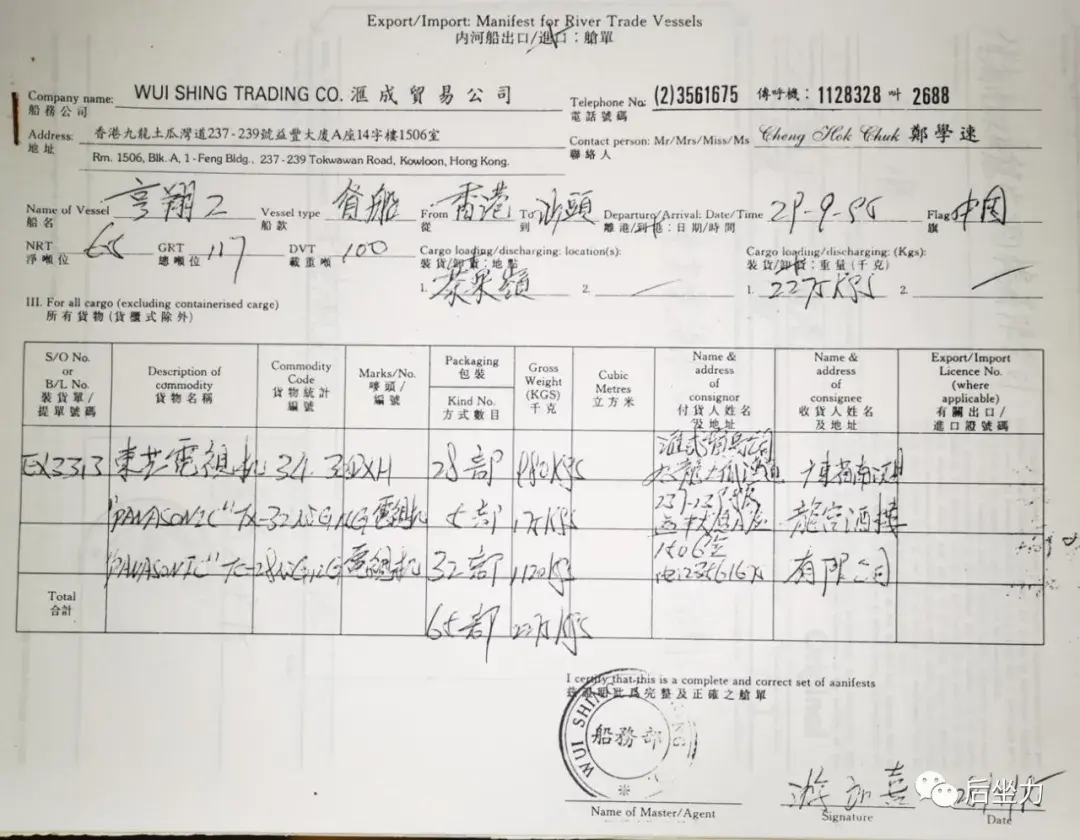 Export/Import: Manifest for River Trade Vessels
內河船出口/進口：艙單
Company name: WUI SHING TRADING CO. 滙成貿易公司
船務公司
Telephone No: (2)3561675 傳呼機：1128328 叫 2688
電話號碼
Address: 香港九龍土瓜灣道237-239號益豐大廈A座14字樓1506室
地址
Rm. 1506, Blk. A, 1-Feng Bldg., 237-239 Tokwawan Road, Kowloon, Hong Kong.
Contact person: Mr/Mrs/Miss/Ms Cheng Hok Chuk 鄭學速
聯絡人
Name of Vessel 亨翔2 Vessel type 貨船 From 香港 To 汕頭 Departure/Arrival: Date/Time 29-9-95 Flag 中国
船名 船款 從 到 離港/到港：日期/時間 旗
NRT 65 GRT 117 DVT 100
淨噸位 總噸位 載重噸
Cargo loading/discharging: location(s):
裝貨/卸貨：地點
1. 茶果嶺 2.
Cargo loading/discharging: (Kgs):
裝貨/卸貨：重量(千克)
1. 2275KGS 2.
III. For all cargo (excluding containerised carge)
所有貨物(貨櫃式除外)
S/O No. or B/L No. 裝貨單/提單號碼
Description of commodity 貨物名稱
Commodity Code 貨物統計編號
Marks/No. 嘜頭/編號
Packaging 包裝
Kind No. 方式數目
Gross Weight (KGS) 千克
Cubic Metres 立方米
Name & address of consignor 付貨人姓名及地址
Name & address of consignee 收貨人姓名及地址
Export/Import Licence No. (where applicable) 有關出口/進口證號碼
EX3313 東芝電視机 28部 980KGS
"PANASONIC" 電視机 5部 175KGS
"PANASONIC" 電視机 32部 1120KGS
1506室
龍宮酒樓
有限公司
Total
合計
65部 2275KGS
I certify that this is a complete and correct set of aanifests
茲證明此爲完整及正確之艙單
WUI SHING
船務部
Name of Master/Agent
Signature
Date
后坐力